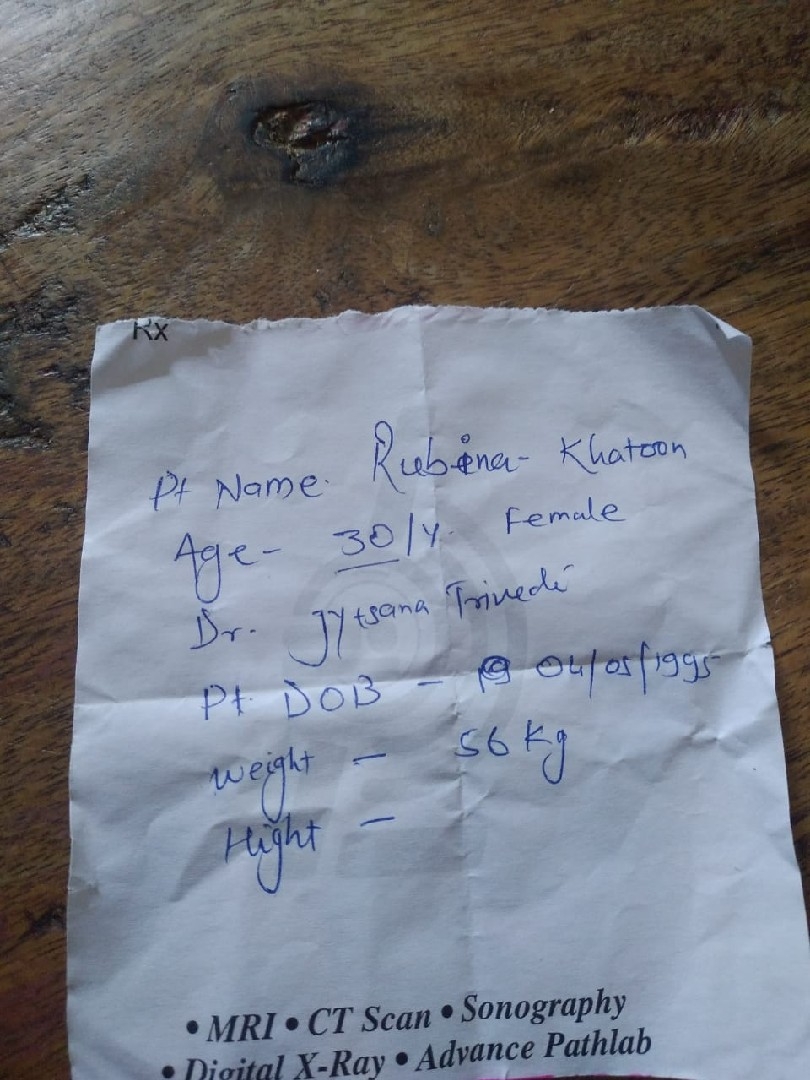 Rx
Pt Name. Rubina- Khatoon
Age- 30/Y. Female
Dr. Jytsana Trivedi
Pt. DOB - 04/05/1995
Weight - 56 Kg
Hight -
• MRI • CT Scan • Sonography
• Digital X-Ray • Advance Pathlab